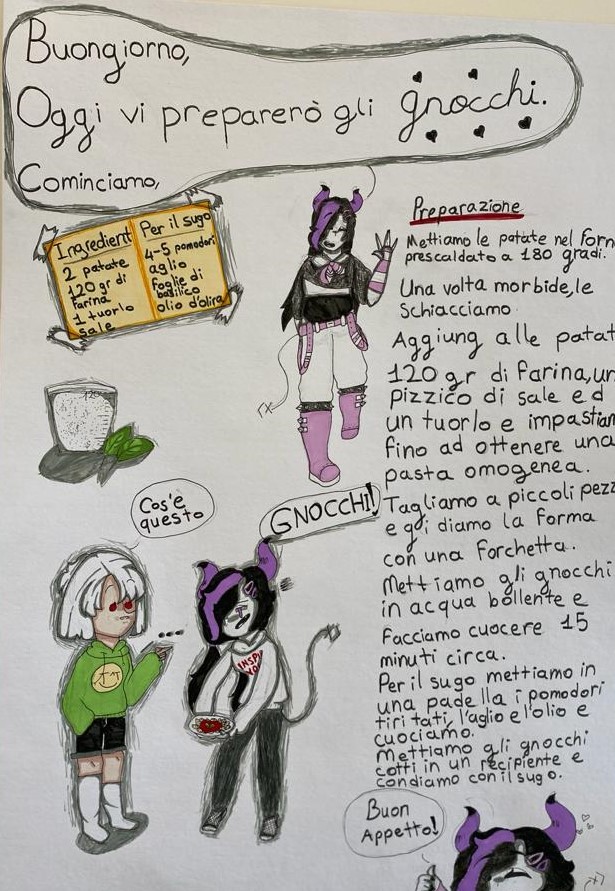 Buongiorno,
Oggi vi preparerò gli gnocchi.
Cominciamo,
Ingredient
2 patate
120 gr di
farina
1 tuorlo
sale
Per il sugo
4-5 pomodori
aglio
foglie di
basilico
olio d'oliva
Preparazione
Mettiamo le patate nel forn
prescaldato a 180 gradi.
Una volta morbide, le
schiacciamo.
Aggiung alle patat
120 gr di farina, un
pizzico di sale ed
un tuorlo e impastian
fino ad ottenere una
pasta omogenea.
Tagliamo a piccoli pezz
e gli diamo la forma
con una forchetta.
Mettiamo gli gnocchi
in acqua bollente e
facciamo cuocere 15
minuti circa.
Per il sugo mettiamo in
una padella i pomodori
tiritati, l'aglio e l'olio e
cuociamo.
Mettiamo gli gnocchi
cotti in un recipiente e
condiamo con il sugo.
Cos'è
questo
GNOCCHI!
....
Buon
Appetto!